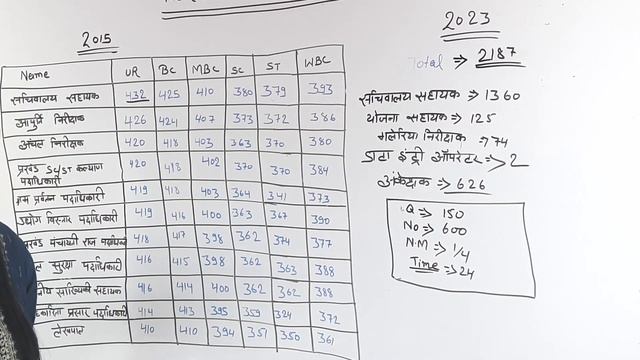 2015
Name UR BC MBC SC ST WBC
सचिवालय सहायक 432 425 410 380 379 393
आपुर्ति निरीक्षक 426 424 407 373 372 386
अंचल निरीक्षक 420 418 403 363 370 380
प्रखंड SC/ST कल्याण पदाधिकारी 420 418 402 370 370 384
प्रबंधन पदाधिकारी 419 418 403 364 341 373
उद्योग विस्तार पदाधिकारी 419 416 400 363 367 390
पंचायती राज 418 417 398 362 374 377
सुरक्षा पदाधिकारी 416 415 398 362 363 388
सांख्यिकी सहायक 416 414 400 362 362 388
प्रसार पदाधिकारी 414 413 395 359 324 372
लेखपाल 410 410 394 351 350 361
2023
Total ⇒ 2187
सचिवालय सहायक ⇒ 1360
योजना सहायक ⇒ 125
मलेरिया निरीक्षक ⇒ 74
डाटा इंट्री ऑपरेटर ⇒ 2
अंकेक्षक ⇒ 626
Q ⇒ 150
No ⇒ 600
N.M ⇒ 1/4
Time ⇒ 2H